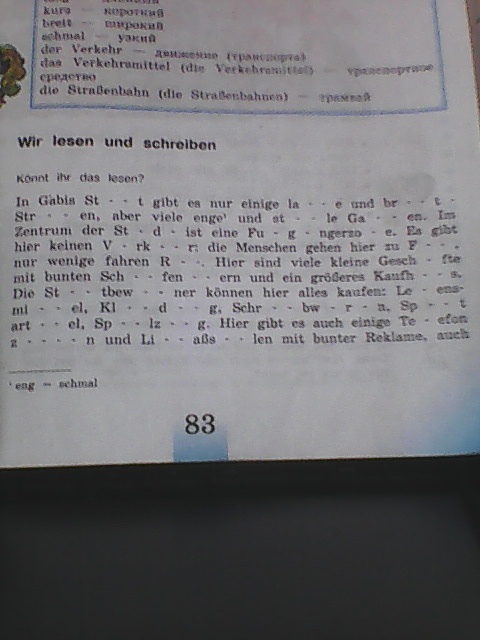 kurz — короткий
breit — широкий
schmal — узкий
der Verkehr — движение (транспорта)
das Verkehrsmittel (die Verkehrsmittel) — транспортное
средство
die Straßenbahn (die Straßenbahnen) — трамвай
Wir lesen und schreiben
Könnt ihr das lesen?
In Gabis St - - t gibt es nur einige la - - e und br - - t -
Str - - en, aber viele enge¹ und st - - le Ga - - en. Im
Zentrum der St - d - ist eine Fu - g - ngerzo - e. Es gibt
hier keinen V - rk - - r: die Menschen gehen hier zu F - - -,
nur wenige fahren R - -. Hier sind viele kleine Gesch - fte
mit bunten Sch - - fen - - ern und ein größeres Kaufh - - s.
Die St - - tbew - - ner können hier alles kaufen: Le - ens-
mi - - el, Kl - - d - - g, Schr - - bw - r - n, Sp - - t
art - - el, Sp - - lz - - g. Hier gibt es auch einige Te - efon
z - - - - n und Li - - aßs - - len mit bunter Reklame, auch
¹ eng — schmal
83